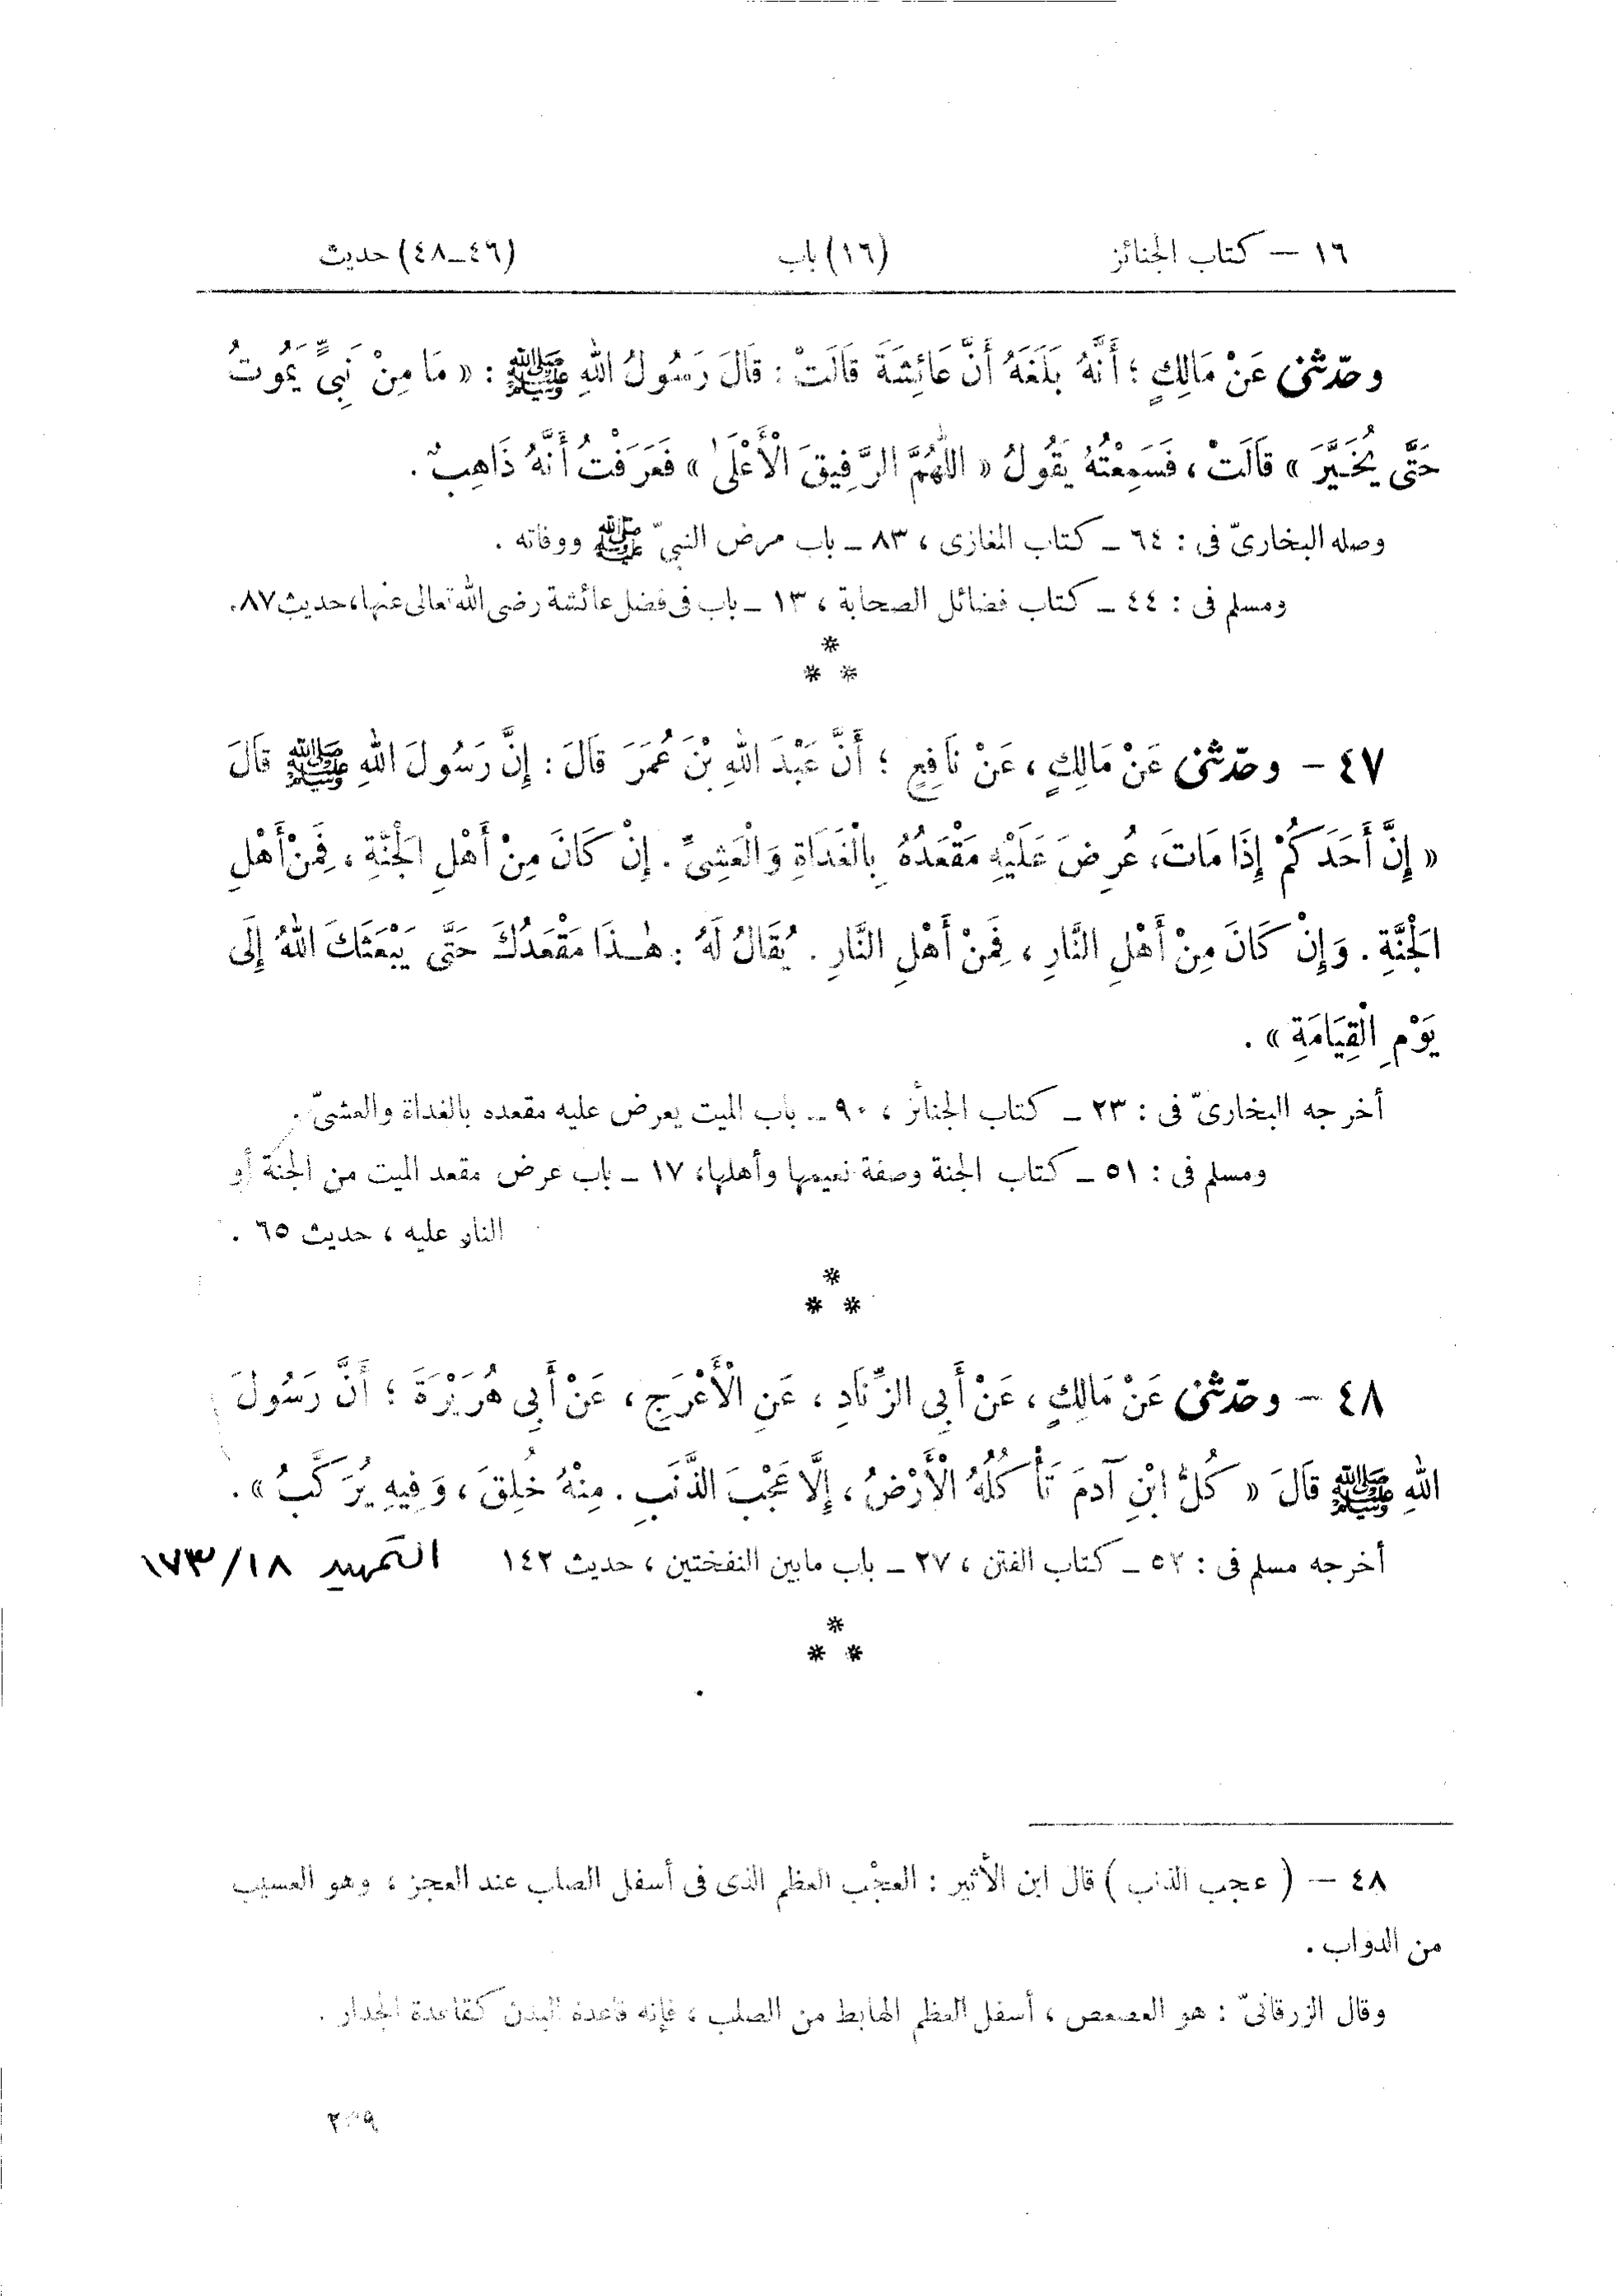 ١٦ — كتاب الجنائز (١٦) باب (٤٦-٤٨) حديث
وحدّثنى عَنْ مَالِكٍ ؛ أَنَّهُ بَلَغَهُ أَنَّ عَائِشَةَ قَالَتْ : قَالَ رَسُولُ اللهِ ﷺ : « مَا مِنْ نَبِىٍّ يَمُوتُ
حَتَّى يُخَيَّرَ » قَالَتْ ، فَسَمِعْتُهُ يَقُولُ « اللَّهُمَّ الرَّفِيقَ الْأَعْلَىٰ » فَعَرَفْتُ أَنَّهُ ذَاهِبٌ .
وصله البخارىّ فى : ٦٤ – كتاب المغازى ، ٨٣ – باب مرض النبىّ ﷺ ووفاته .
ومسلم فى : ٤٤ – كتاب فضائل الصحابة ، ١٣ – باب فى فضل عائشة رضى الله تعالى عنها، حديث ٨٧.
*
* *
٤٧ – وحدّثنى عَنْ مَالِكٍ ، عَنْ نَافِعٍ ؛ أَنَّ عَبْدَ اللهِ بْنَ عُمَرَ قَالَ : إِنَّ رَسُولَ اللهِ ﷺ قَالَ
« إِنَّ أَحَدَكُمْ إِذَا مَاتَ، عُرِضَ عَلَيْهِ مَقْعَدُهُ بِالْغَدَاةِ وَالْعَشِىِّ . إِنْ كَانَ مِنْ أَهْلِ الْجَنَّةِ ، فَمِنْ أَهْلِ
الْجَنَّةِ . وَإِنْ كَانَ مِنْ أَهْلِ النَّارِ ، فَمِنْ أَهْلِ النَّارِ . يُقَالُ لَهُ : هٰذَا مَقْعَدُكَ حَتَّى يَبْعَثَكَ اللهُ إِلَى
يَوْمِ الْقِيَامَةِ » .
أخرجه البخارىّ فى : ٢٣ – كتاب الجنائز ، ٩٠ – باب الميت يعرض عليه مقعده بالغداة والعشىّ .
ومسلم فى : ٥١ – كتاب الجنة وصفة نعيمها وأهلها، ١٧ – باب عرض مقعد الميت من الجنة أو
النار عليه ، حديث ٦٥ .
*
* *
٤٨ – وحدّثنى عَنْ مَالِكٍ ، عَنْ أَبِى الزِّنَادِ ، عَنِ الْأَعْرَجِ ، عَنْ أَبِى هُرَيْرَةَ ؛ أَنَّ رَسُولَ
اللهِ ﷺ قَالَ « كُلُّ ابْنِ آدَمَ تَأْكُلُهُ الْأَرْضُ ، إِلَّا عَجْبَ الذَّنَبِ . مِنْهُ خُلِقَ ، وَفِيهِ يُرَكَّبُ » .
أخرجه مسلم فى : ٥٢ – كتاب الفتن ، ٢٧ – باب مابين النفختين ، حديث ١٤٢ التمهيد ١٧٣/١٨
*
* *
٤٨ — ( عجب الذنب ) قال ابن الأثير : العجْب العظم الذى فى أسفل الصلب عند العجز ، وهو العسيب
من الدواب .
وقال الزرقانىّ : هو العصعص ، أسفل العظم الهابط من الصلب ، فإنه قاعدة البدن كقاعدة الجدار .